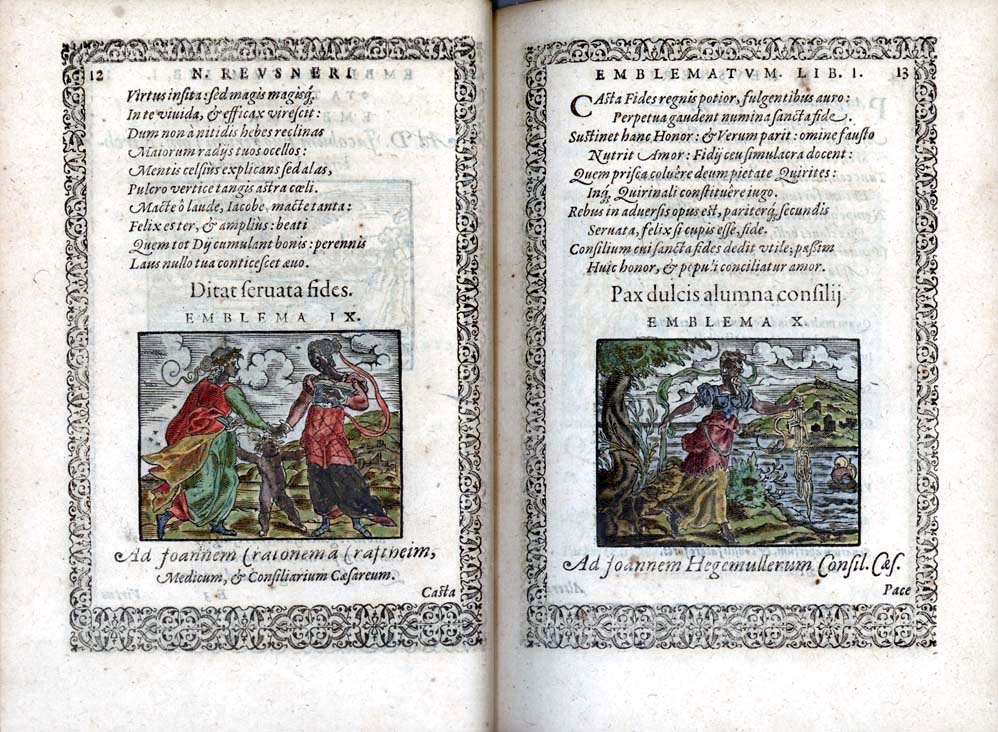 12
N. REVSNERI
Virtus insita: sed magis magisq́;
In te viuida, & efficax virescit:
Dum non à nitidis hebes reclinas
Maiorum radijs tuos ocellos:
Mentis celsiùs explicans sed alas,
Pulcro vertice tangis astra cœli.
Macte ô laude, Iacobe, macte tanta:
Felix es ter, & ampliùs: beati
Quem tot Dij cumulant bonis: perennis
Laus nullo tua conticescet æuo.
Ditat seruata fides.
EMBLEMA IX.
Ad Joannem Cratonem a Craftheim,
Medicum, & Consiliarium Cæsareum.
Casta
EMBLEMATVM. LIB. I.
13
CAsta Fides regnis potior, fulgentibus auro:
Perpetua gaudent numina sancta fide.
Sustinet hanc Honor: & Verum parit: omine fausto
Nutrit Amor: Fidij ceu simulacra docent:
Quem prisca coluêre deum pietate Quirites:
Inq́; Quirinali constituêre iugo.
Rebus in aduersis opus est, pariterq́; secundis
Seruata, felix si cupis esse, fide.
Consilium cui sancta fides dedit vtile; passim
Huic honor, & popu'i conciliatur amor.
Pax dulcis alumna consilij
EMBLEMA X.
Ad Joannem Hegemullerum Consil. Cæs.
Pace